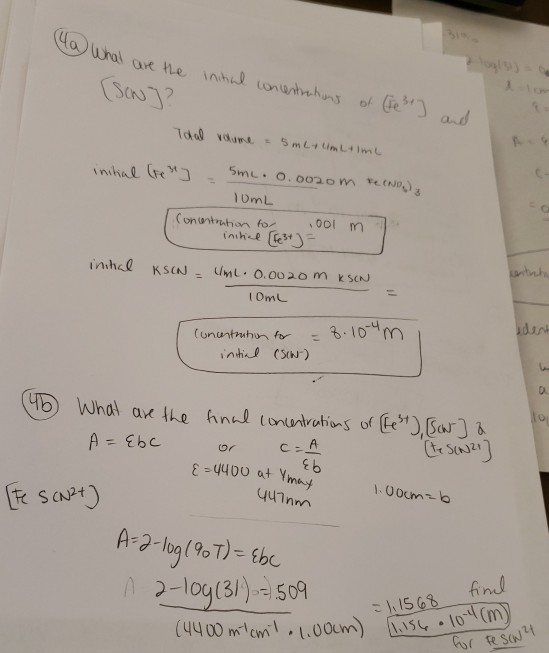 4a What are the initial concentrations of [Fe³⁺] and
[SCN]?
Total volume = 5mL+4mL+1mL
initial [Fe³⁺] = 5mL · 0.0020 M Fe(NO₃)₃
10mL
Concentration for initial [Fe³⁺] = .001 M
initial KSCN = 4mL · 0.0020 M KSCN
10mL =
Concentration for initial (SCN⁻) = 8·10⁻⁴ M
4b What are the final concentrations of [Fe³⁺], [SCN⁻] &
[FeSCN²⁺]
A = εbc or c = A
εb
ε = 4400 at γmax
447nm
1.00cm = b
[Fe SCN²⁺]
A = 2-log(%T) = εbc
2-log(31) = .509
(4400 m⁻¹cm⁻¹ · 1.00cm)
= 1.1568 final
1.156 · 10⁻⁴ (M)
for FeSCN²⁺